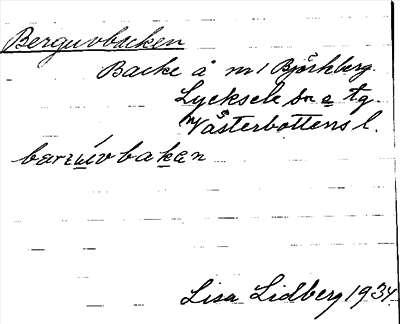 Berguvbacken
Backe å m/ Björkberg.
Lycksele sn o tg.
Västerbottens l.
barzúvbakan
Lisa Lidberg 1934